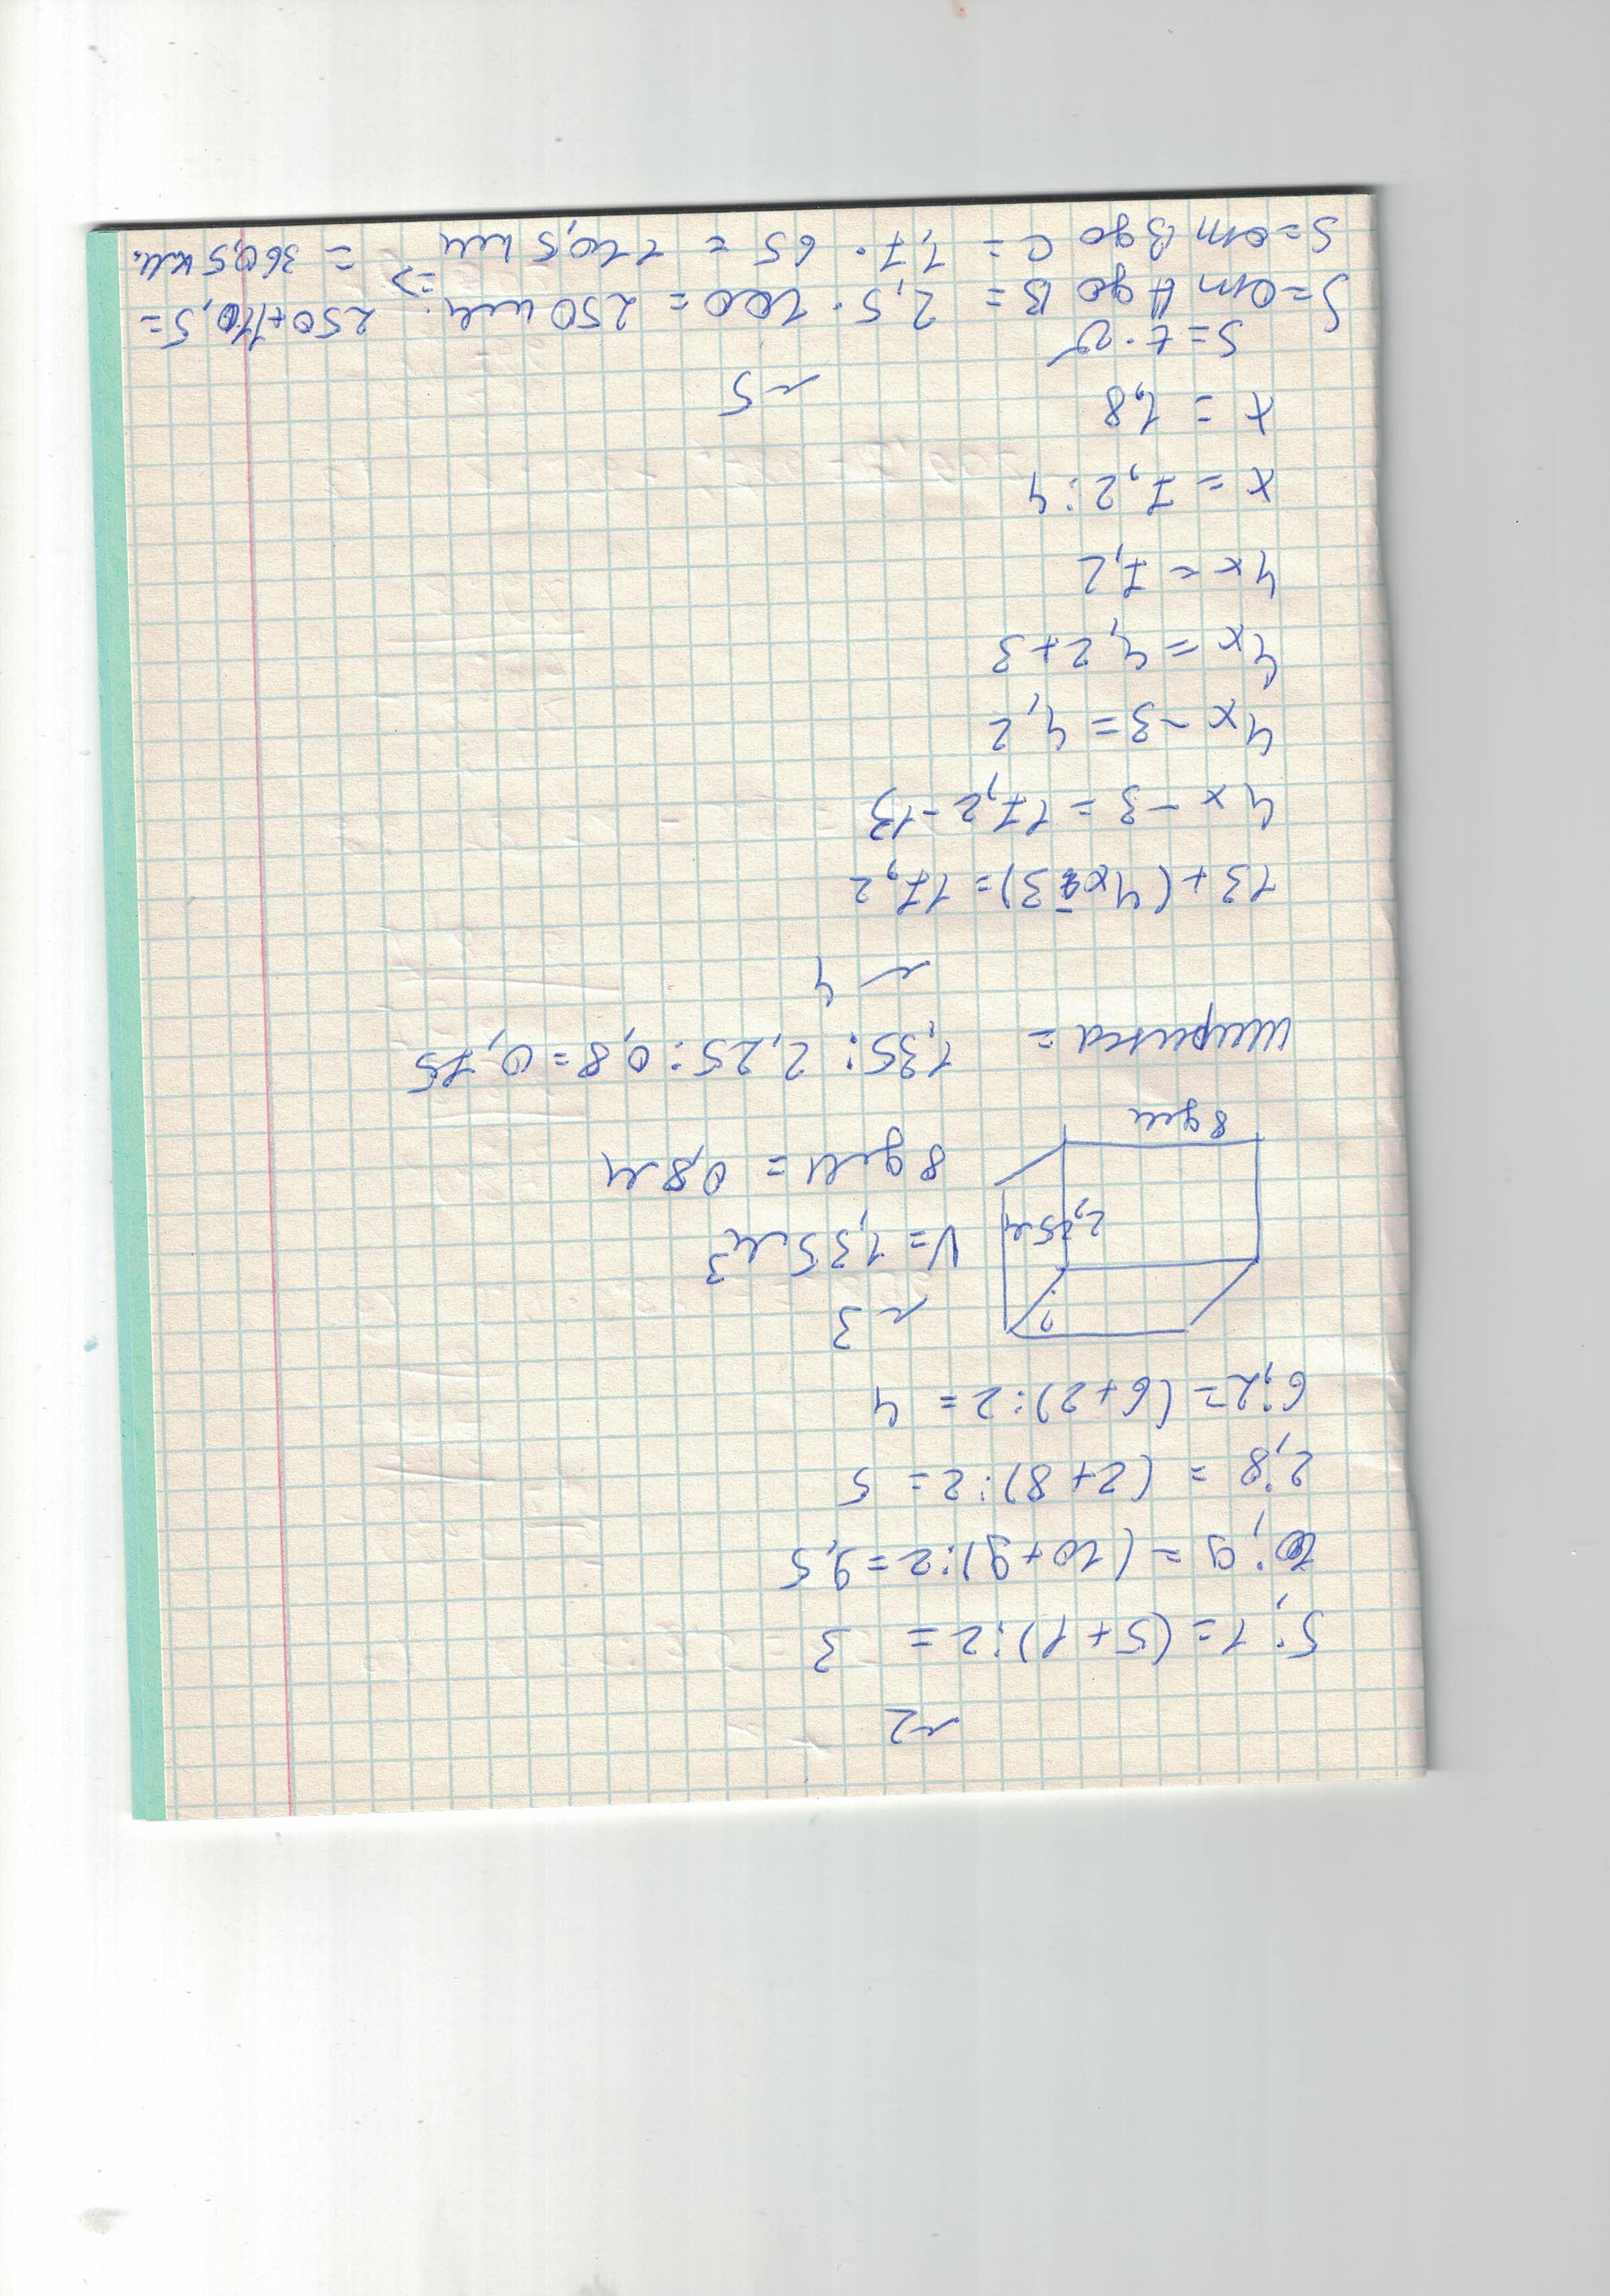 ~2
5; 1 = (5+1):2 = 3
10; 9 = (10+9):2=9,5
2; 8 = (2+8):2= 5
6; 2= (6+2):2 = 4
~3
?
2,25м
8дм
V=1,35м³
8дм = 0,8м
ширина = 1,35:2,25:0,8=0,75
~4
13+(4x-3)=17,2
4x-3=17,2-13
4x-3=4,2
4x=4,2+3
4x=7,2
x=7,2:4
x=1,8
~5
S=t·v
S=от A до B= 2,5·100=250км. 250+110,5=
S=от B до C= 1,7·65=110,5км => =360,5км.